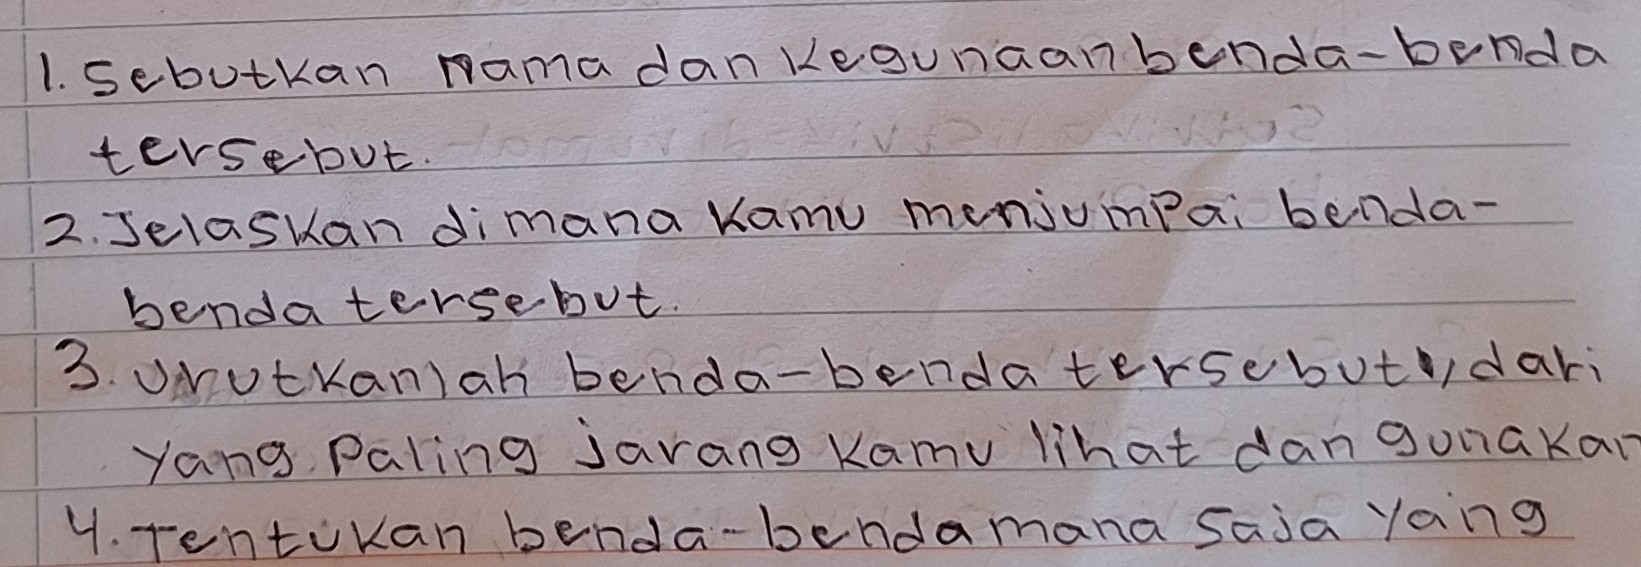 1. Sebutkan nama dan kegunaan benda-benda
tersebut.
2. Jelaskan di mana kamu menjumpai benda-
benda tersebut.
3. Urutkanlah benda-benda tersebut, dari
yang paling jarang kamu lihat dan gunakan
4. Tentukan benda-benda mana saja yang